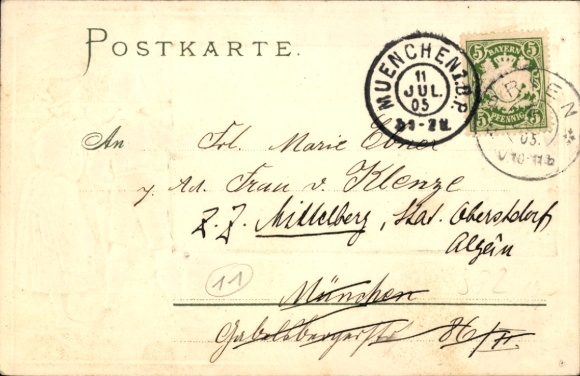 POSTKARTE.
MUENCHEN I.B.P.
11
JUL.
05
5 BAYERN 5
5 PFENNIG 5
05.
An Frl. Marie Ebner
Ad. Frau v. Klenze
z. Z. Mittelberg, Stat. Oberstdorf
Algäu
11
München
Gabelsbergerstr 86/II.